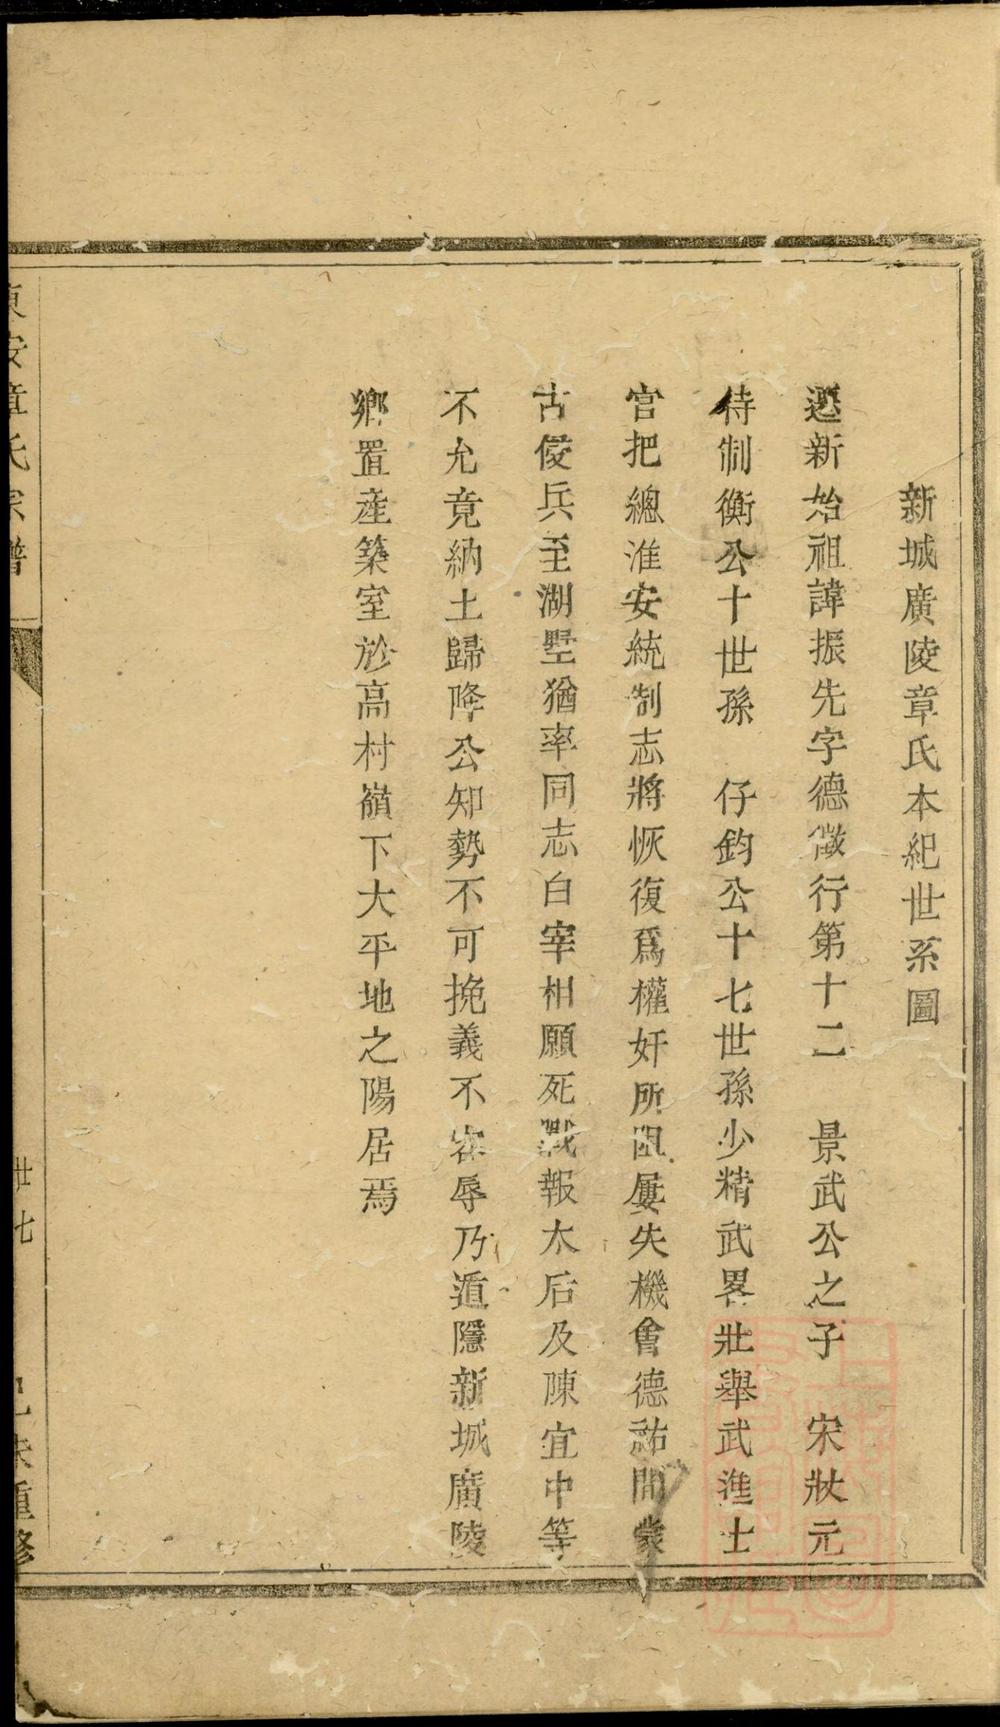 新城廣陵章氏本紀世系圖
遷新始祖諱振先字德徵行第十二　景武公之子　宋狀元
待制衡公十世孫　仔鈞公十七世孫少精武畧壯舉武進士
官把總淮安統制志將恢復爲權奸所阻屢失機會德祐間蒙
古侵兵至湖墅猶率同志白宰相願死戰報太后及陳宜中等
不允竟納土歸降公知勢不可挽義不容辱乃遁隱新城廣陵
鄉置產築室於高村嶺下大平地之陽居焉
東安章氏宗譜
廿七
己未重修